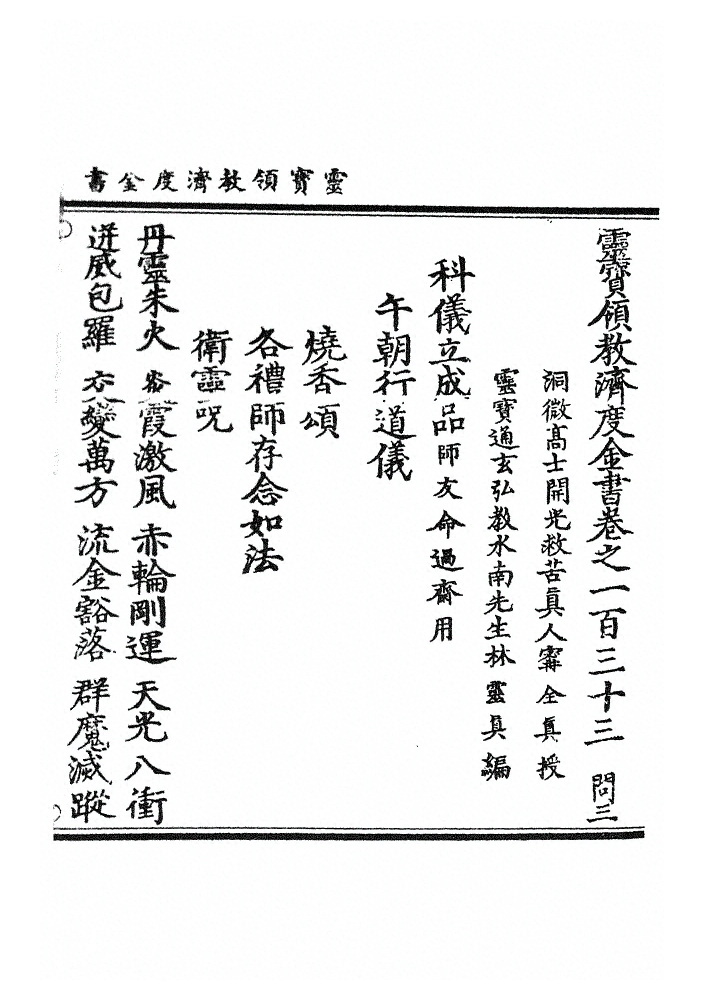 靈寶領教濟度金書
靈寶領教濟度金書卷之一百三十三 問三
洞微高士開光救苦真人甯全真授
靈寶通玄弘教水南先生林靈真編
科儀立成品師友命過齋用
午朝行道儀
燒香頌
各禮師存念如法
衛靈呪
丹靈朱火 霞激風 赤輪剛運 天光八衝
迸威包羅 變萬方 流金豁落 群魔滅蹤